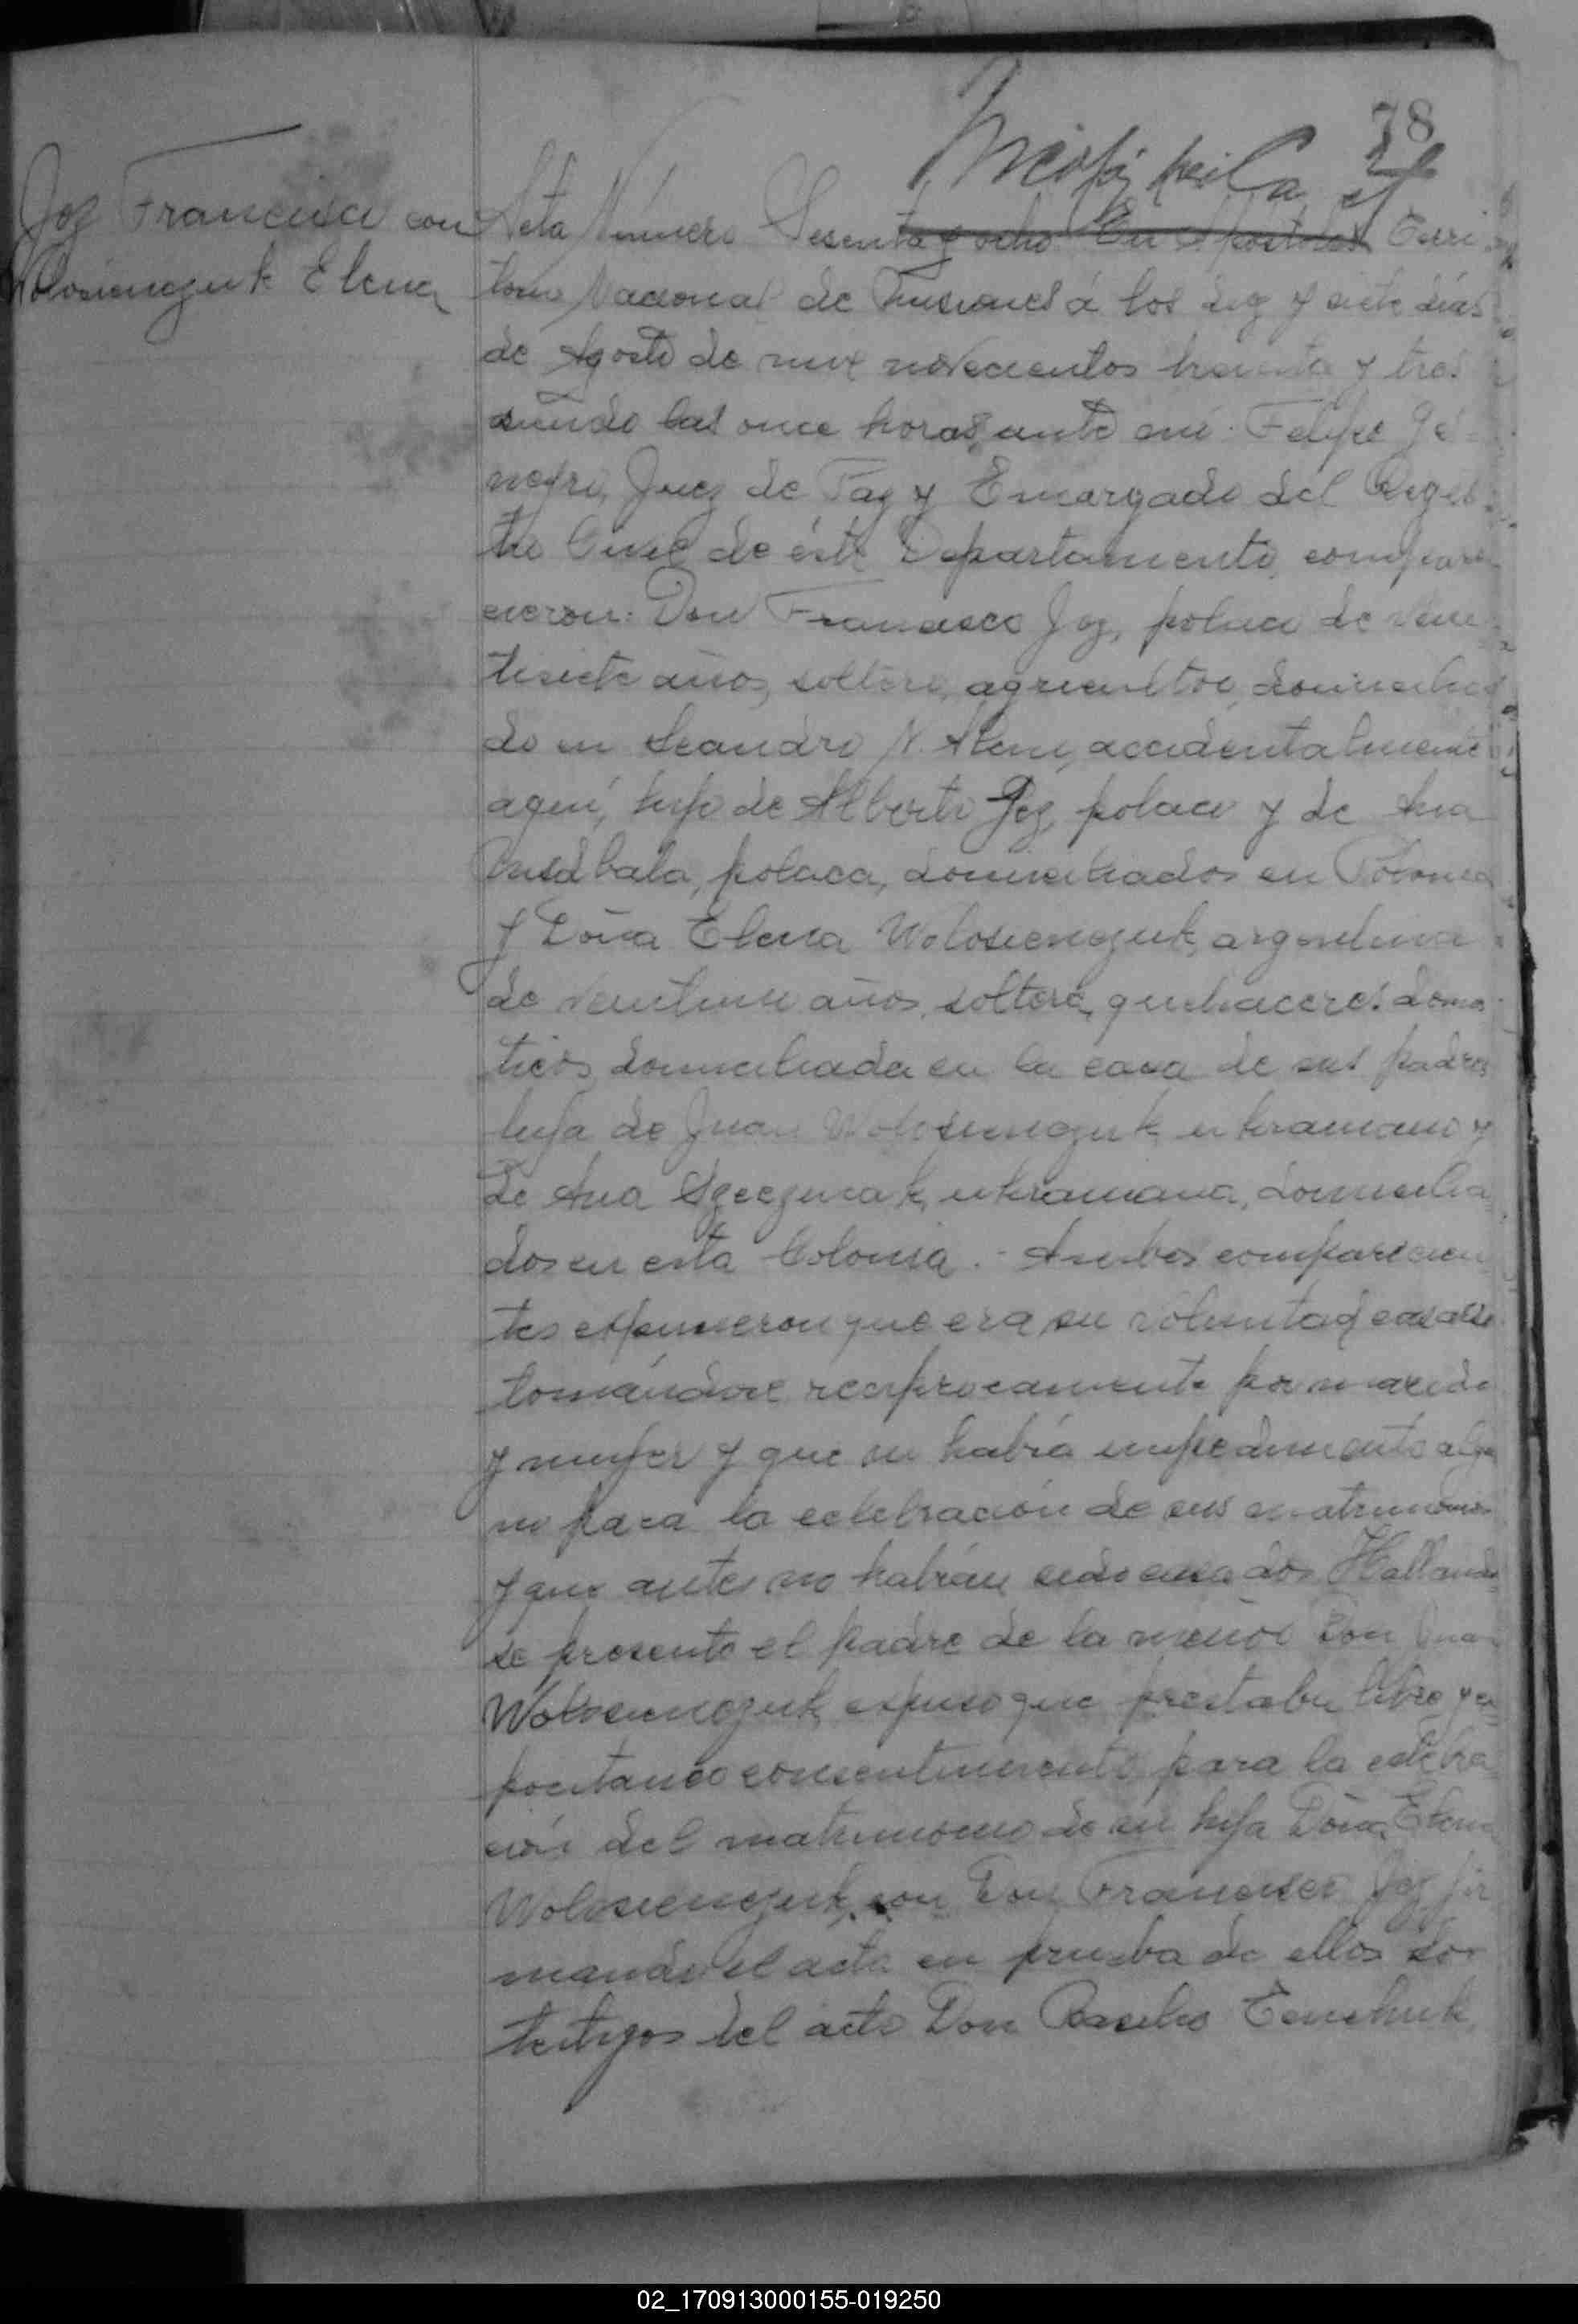 78
Joz Francisco con
Wolosienczuk Elena
Acta Número Sesenta y ocho En Apóstoles Terri
torio Nacional de Misiones á los diez y siete días
de Agosto de mil novecientos treinta y tres
siendo las once horas, ante mí: Felipe
Juez de Paz y Encargado del Regis
tro Civil de éste Departamento, compare
cieron: Don Francisco Joz, polaco de vein
tisiete años, soltero, agricultor, domicilia
do en Leandro N. Alem, accidentalmente
aquí, hijo de Alberto Joz, polaco y de Ana
polaca, domiciliados en Polonia
y Doña Elena Wolosienczuk, argentina
de años, soltera, quehaceres domes
ticos, domiciliada en la casa de sus padres
hija de Juan Wolosienczuk, ukraniano y
de Ana ukraniana, domicilia
dos en esta Colonia. - Ambos comparecien
tes expusieron que era su voluntad casarse
tomándose reciprocamente por marido
y mujer y que no había impedimento algu
no para la celebración de sus matrimonio
y que antes no habían sido casados Hallando
se presente el padre de la menor Don Juan
Wolosienczuk, expuso que prestaba libre y es
pontaneo consentimiento para la celebra
ción del matrimonio de su hija Doña Elena
Wolosienczuk, con Don Francisco Joz, fir
mando el acta en prueba de ellos los
testigos del acto Don Basilio
02_170913000155-019250